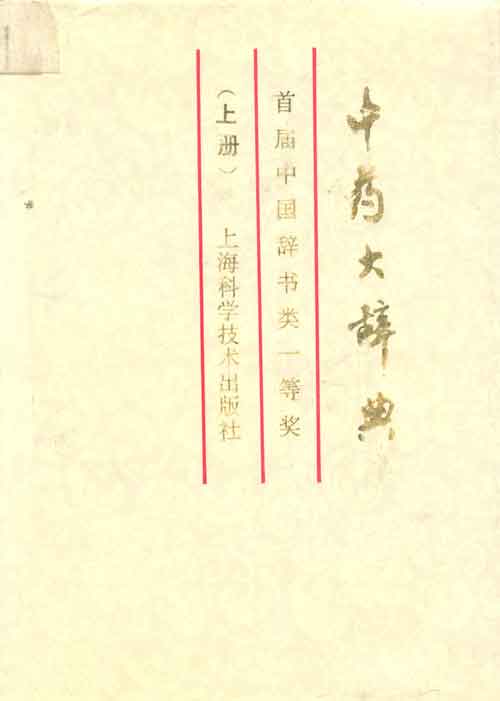 中药大辞典
首届中国辞书类一等奖
（上册） 上海科学技术出版社